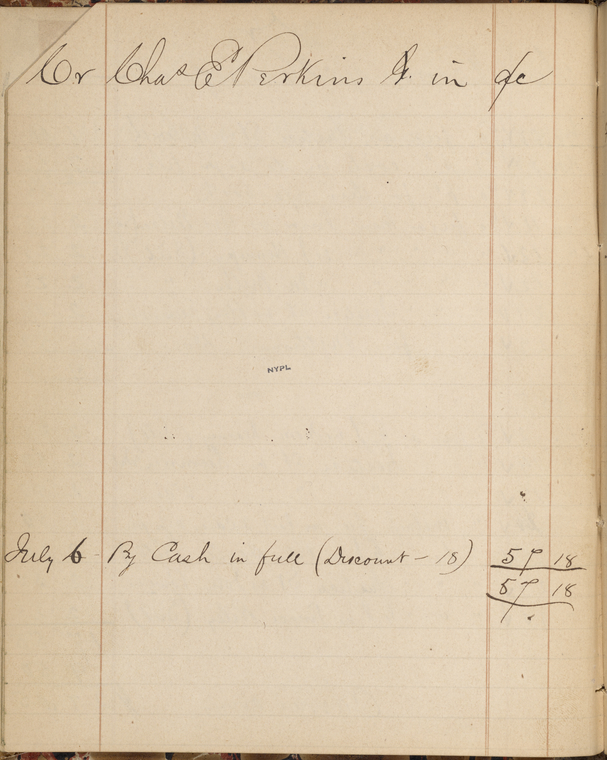 Cr Chas E Perkins Jr. in a/c
NYPL
July 6 By Cash in full (Discount - 18) 57 18
57 18